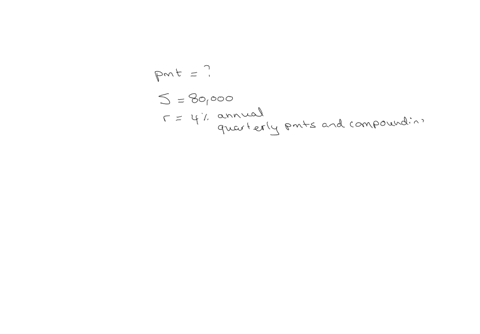 pmt = ?
S = 80,000
r = 4% annual
quarterly pmts and compounding